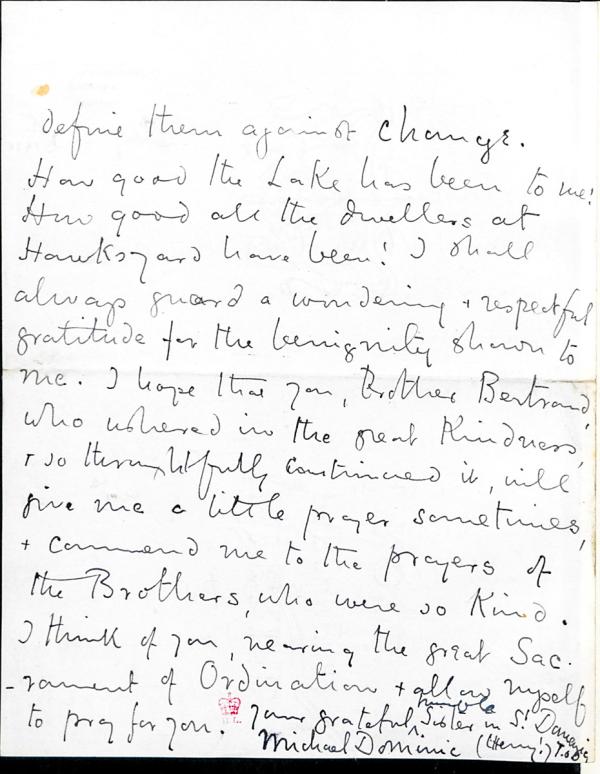 define them against change.
How good the Lake has been to me!
How good all the dwellers at
Hawksyard have been! I shall
always guard a wondering + respectful
gratitude for the benignity shown to
me. I hope that you, Brother Bertrand,
who ushered in the great Kindness,
+ so thoughtfully continued it, will
give me a little prayer sometimes,
+ commend me to the prayers of
the Brothers, who were so Kind.
I think of you, nearing the great Sac-
-rament of Ordination + allow myself
to pray for you. Your grateful, humble Sister in St Dominic
Michael Dominic (Henry!) T.O.D.
B.L.